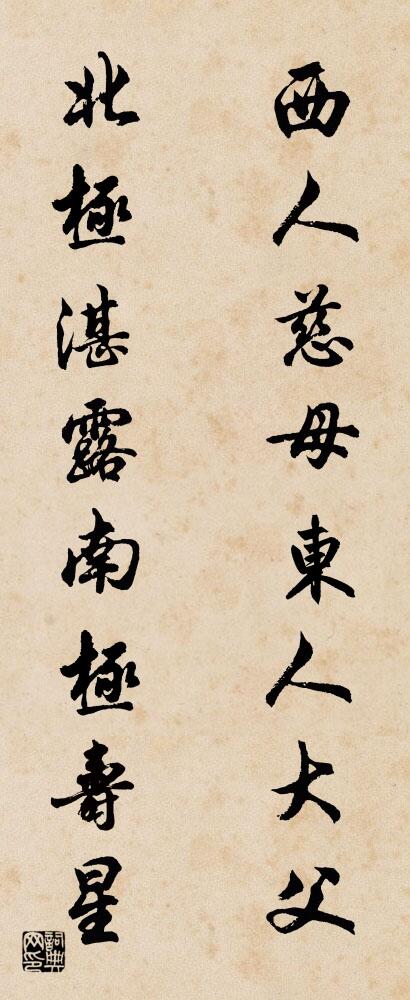 西人慈母東人大父
北極湛露南極壽星
詞典网印